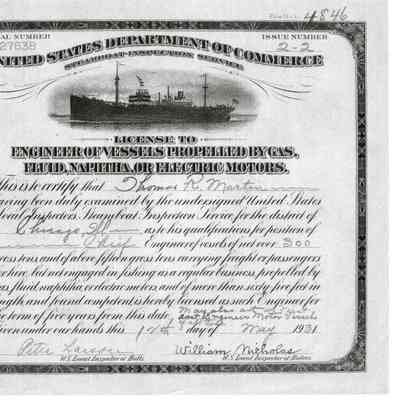 4846
AL NUMBER
27638
ISSUE NUMBER
2-2
UNITED STATES DEPARTMENT OF COMMERCE
STEAMBOAT INSPECTION SERVICE
LICENSE TO
ENGINEER OF VESSELS PROPELLED BY GAS,
FLUID, NAPHTHA, OR ELECTRIC MOTORS.
This is to certify that Thomas R. Martin
having been duly examined by the undersigned United States
Local Inspectors, Steamboat Inspection Service, for the district of
Chicago, Ill as to his qualifications for position of
Chief Engineer of vessels of not over 300
gross tons and of above fifteen gross tons carrying freight or passengers
for hire, but not engaged in fishing as a regular business, propelled by
gas, fluid, naphtha, or electric motors, and of more than sixty-five feet in
length and found competent is hereby licensed as such Engineer for
the term of five years from this date. May also act as
Asst Engineer Motor Vessels
Given under our hands this 12th day of May 1931
Peter William Nicholas
U.S. Local Inspector of Hulls. U.S. Local Inspector of Boilers.